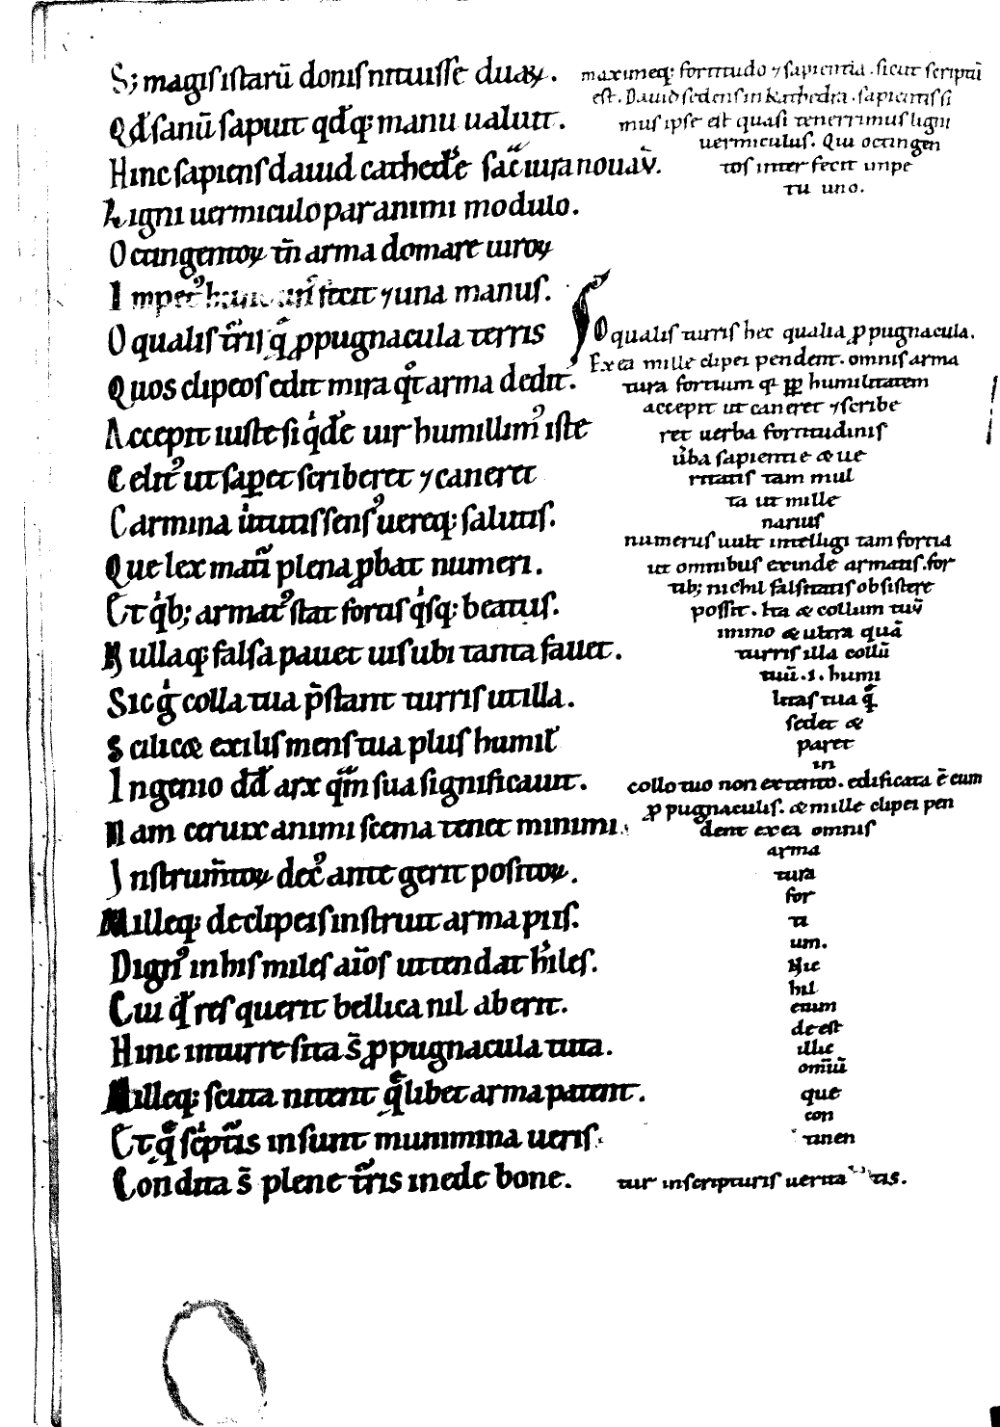 S; magis istarū donis nituisse duaꝝ.
Qd̄ sanū sapuit qd̄q; manu ualuit.
Hinc sapiens dauid cathedrę sac̄ iura nouaꝟ.
Ligni uermiculo par animi modulo.
Octingentoꝝ tn̄ arma domare uiroꝝ
Impetꝰ fecit ⁊ una manus.
O qualis tr̄ris q̄ ꝓpugnacula terris
Quos clipeos edit mira qͦt arma dedit.
Accepit iuste si qͥd ē uir humillimꝰ iste
Celitꝰ ut saꝑet scriberet ⁊ caneret
Carmina uirtutis sensꝰ uereq; salutis.
Que lex matū plena ꝓbat numeri.
Et qͥb; armatꝰ stat fortis qͥsq; beatus.
Nullaq; falsa pauet uis ubi tanta fauet.
Sic gͥ colla tua p̄stant turris ut illa.
Scilicæ exilis mens tua plus humilͥ
Ingenio dd̄ arx qm̄ sua significauit.
Nam ceruix animi scema tenet minimi.
Instrum̄toꝝ decꝰ ante gerit positoꝝ.
Milleq; de clipeis instruit arma piis.
Dignꝰ in his miles aīos ut tendat hͥles.
Cui qd̄ res querit bellica nil aberit.
Hinc in turre sita s̄ ꝓpugnacula tuta.
Milleq; scuta nitent q̄libet arma patent.
Et q̄ sc̄ptis insunt munimina ueris.
Condita s̄ plene tr̄ris in ede bone.
maximeq; fortitudo ⁊ sapientia. sicut scriptū
est. Dauid sedens in kathedra. sapientissi
mus ipse est quasi tenerrimus ligni
uermiculus. Qui octingen
tos inter fecit impe
tu uno.
O qualis turris hec qualia ꝓpugnacula.
Ex ea mille clipei pendent. omnis arma
tura fortium qͥ ꝓp humilitatem
accepit ut caneret ⁊ scribe
ret uerba fortitudinis
ūba sapientie æ ue
ritatis tam mul
ta ut mille
narius
numerus uult intelligi tam fortia
ut omnibus exinde armatis. for
tib; nichil falsitatis obsistere
possit. Ita æ collum tuū
immo æ ultra quā
turris illa collū
tuū .i. humi
litas tua q̄
sedet æ
paret
in
collo tuo non extento. edificata ē cum
ꝓpugnaculis. æ mille clipei pen
dent ex ea omnis
arma
tura
for
ti
um.
Nic
hil
enim
de est
illic
omīū
que
con
tinen
tur in scripturis ueritatis.